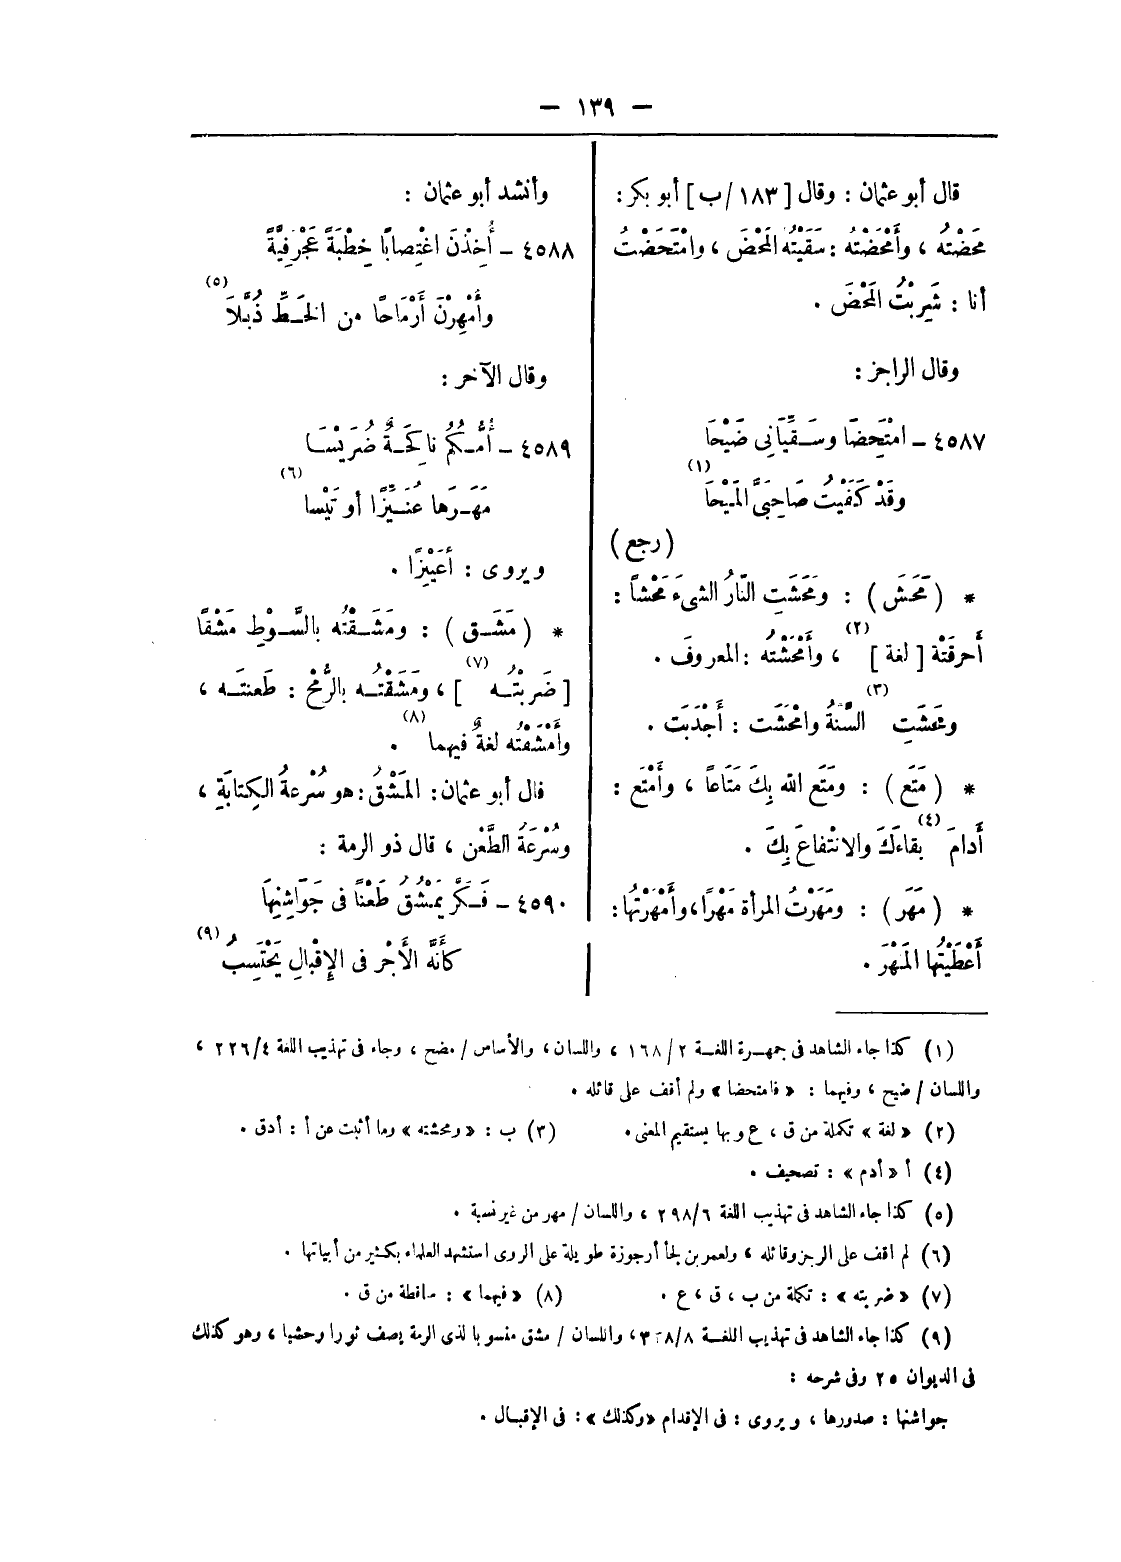 — ١٣٩ —
قال أبو عثمان : وقال [ ١٨٣/ب ] أبو بكر :
مَحَضْتُه ، وأَمْحَضْتُه : سَقَيْتُه المَحْضَ ، وامْتَحَضْتُ
أنا : شَرِبْتُ المَحْضَ .
وقال الراجز :
٤٥٨٧ – امْتَحِضَا وسَقِّيَانِي ضَيْحَا
وقَدْ كَفَيْتُ صَاحِبَيَّ المَيْحَا (١)
(رجع)
* (مَحَشَ) : ومَحَشَتِ النَّارُ الشىءَ مَحْشاً :
أَحرقَتْة [ لغة ] (٢) ، وأَمْحَشْتُه : المعروف .
ومَحَشَتِ (٣) السَّنةُ وامْحَشَت : أَجْدَبَت .
* (مَتَع) : ومَتَع الله بِكَ مَتَاعاً ، وأَمْتَع :
أَدامَ (٤) بقاءَكَ والانْتفاعَ بِكَ .
* (مَهَر) : ومَهَرْتُ المرأة مَهْرًا، وأَمْهَرْتُها :
أَعْطَيْتُها المَهْرَ .
وأنشد أبو عثمان :
٤٥٨٨ – أُخِذْنَ اغْتِصابًا خِطْبَةً عَجْرَفِيَّةً
وأُمْهِرْنَ أَرْمَاحًا من الخَطِّ ذُبَّلَا (٥)
وقال الآخر :
٤٥٨٩ – أُمُّكُم ناكِحَةٌ ضُرَيْسَا
مَهَرَها عُنَيِّزًا أو تَيْسا (٦)
ويروى : أَعَيْنِزًا .
* (مَشَق) : ومَشَقْتُه بالسَّوْطِ مَشْقًا
[ ضَربْتُه (٧) ] ، ومَشَقْتُه بالرُّمْحِ : طَعنته ،
وأَمْشَقْتُه لغةٌ فيهما (٨) .
قال أبو عثمان : المَشْقُ : هو سُرْعةُ الكِتابَةِ ،
وسُرْعَةُ الطَّعْن ، قال ذو الرمة :
٤٥٩٠ – فَكَرَّ يَمْشُقُ طَعْنًا فى جَوَاشِنِهَا
كأَنَّه الأَجْر فى الإقْبالِ يَحْتَسِبُ (٩)
(١) كذا جاء الشاهد فى جمهرة اللغة ١٦٨/٢ ، واللسان ، والأساس / مضح ، وجاء فى تهذيب اللغة ٢٢٦/٤ ،
واللسان / ضيح ، وفيهما : « فامتحضا » ولم أقف على قائله .
(٢) « لغة » تكملة من ق ، ع وبها يستقيم المعنى .
(٣) ب : « ومحشته » وما أثبت عن أ : أدق .
(٤) أ « أدم » : تصحيف .
(٥) كذا جاء الشاهد فى تهذيب اللغة ٢٩٨/٦ ، واللسان / مهر من غير نسبة .
(٦) لم اقف على الرجز وقائله ، ولعمر بن لجأ أرجوزة طويلة على الروى استشهد العلماء بكثير من أبياتها .
(٧) « ضربته » : تكملة من ب ، ق ، ع .
(٨) « فيهما » : ساقطة من ق .
(٩) كذا جاء الشاهد فى تهذيب اللغة ، واللسان / مشق منسوبا لذى الرمة يصف ثورا وحشيا ، وهو كذلك
فى الديوان ٢٥ وفى شرحه :
جواشنها : صدورها ، ويروى : فى الإقدام «وكذلك» : فى الإقبال .